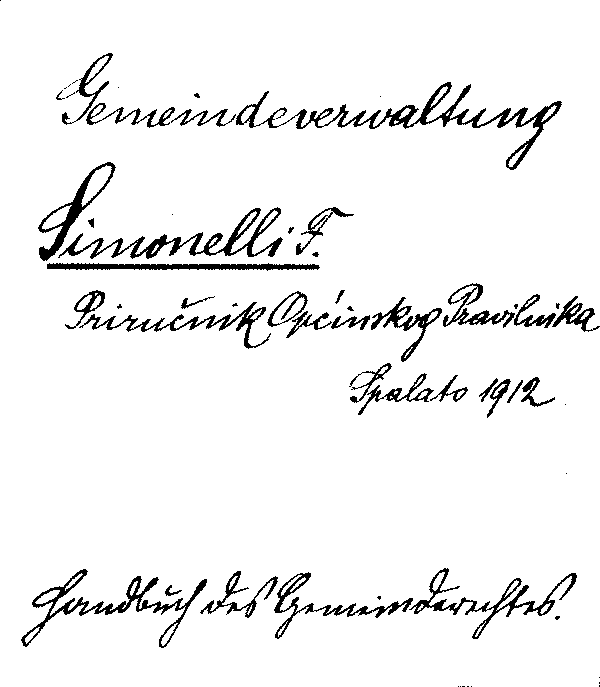 Gemeindeverwaltung
Simonelli F.
Priručnik Općinskog Pravilnika
Spalato 1912
Handbuch des Gemeinderechtes.